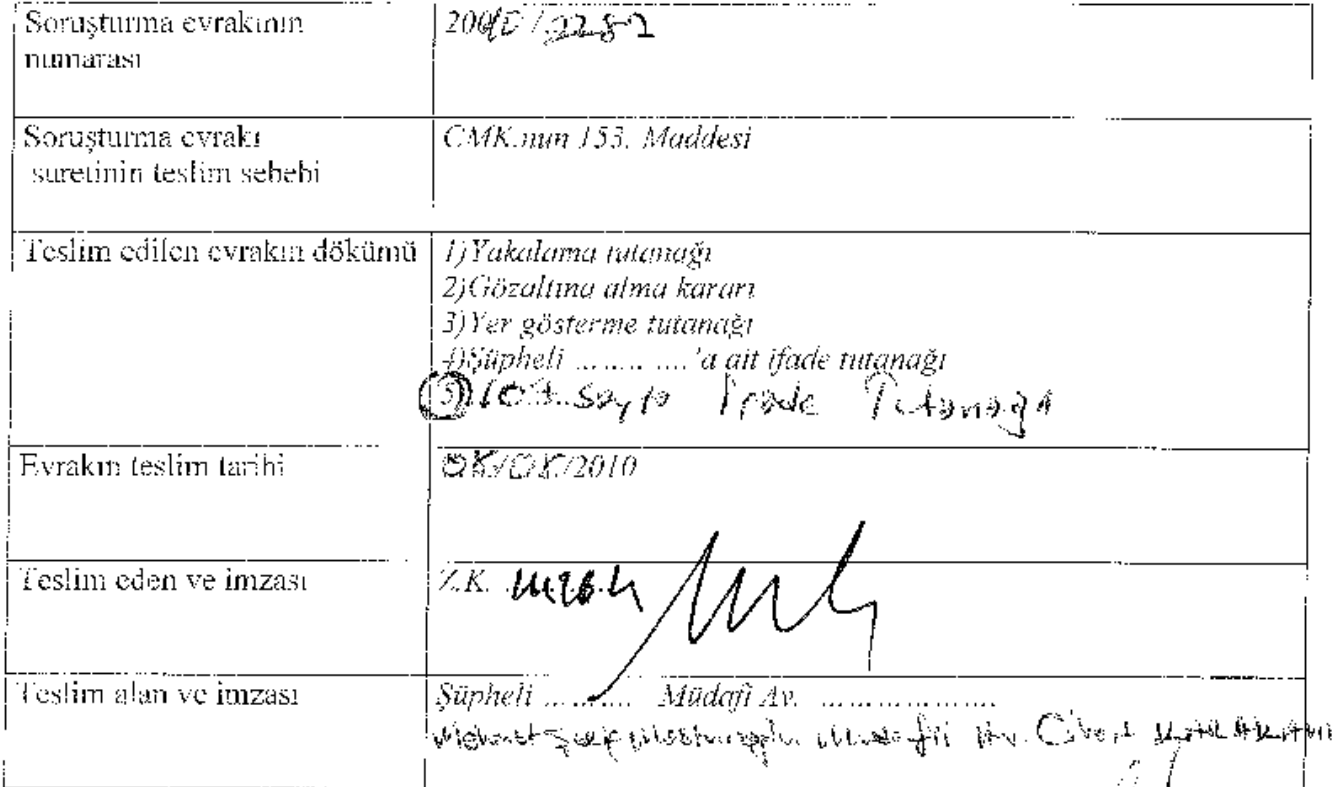 Soruşturma evrakının
numarası
Soruşturma evrakı
suretinin teslim sebebi
CMK.nun 153. Maddesi
Teslim edilen evrakın dökümü
1)Yakalama tutanağı
2)Gözaltına alma kararı
3)Yer gösterme tutanağı
4)Şüpheli ........ ....'a ait ifade tutanağı
5) Sayfa İfade Tutanağı
Evrakın teslim tarihi
/2010
Teslim eden ve imzası
Z.K.
Teslim alan ve imzası
Şüpheli .......... Müdafi Av. ...................
Mehmet Av.